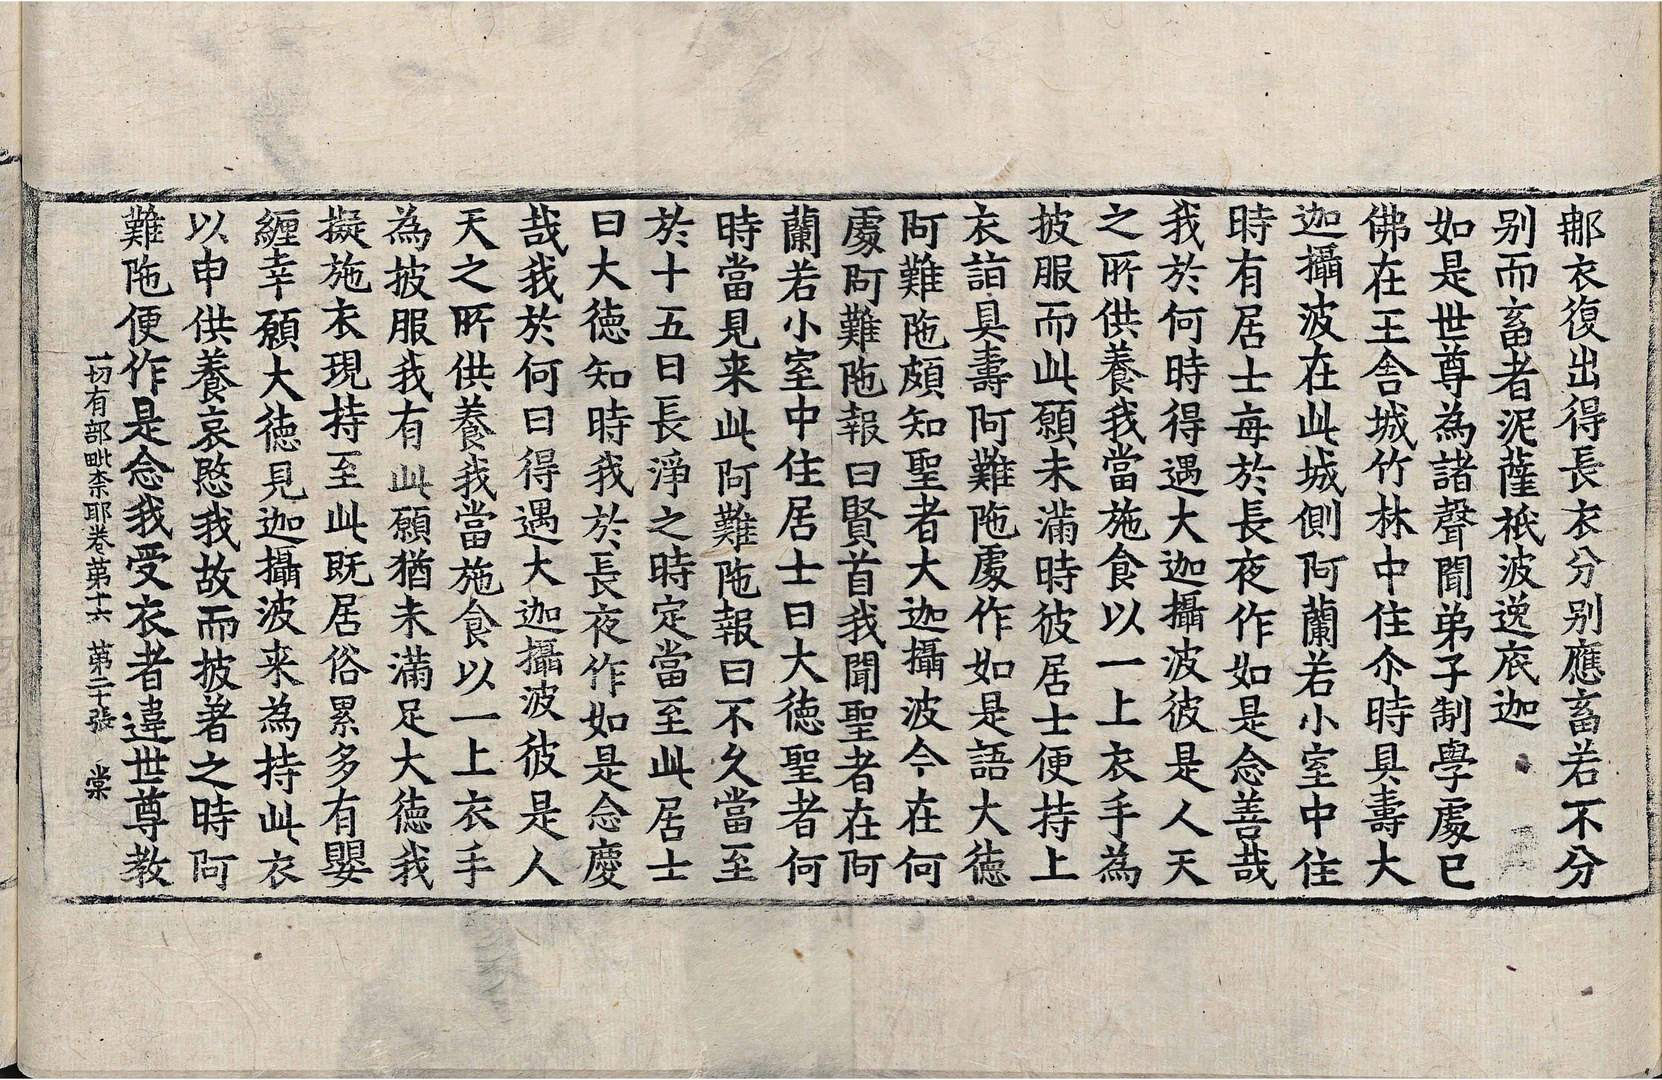 那衣復出得長衣分别應畜若不分
别而畜者泥薩祇波逸底迦
如是世尊為諸聲聞弟子制學處已
佛在王舍城竹林中住尒時具壽大
迦攝波在此城側阿蘭若小室中住
時有居士每於長夜作如是念善哉
我於何時得遇大迦攝波彼是人天
之所供養我當施食以一上衣手為
披服而此願未滿時彼居士便持上
衣詣具壽阿難陁處作如是語大德
阿難陁頗知聖者大迦攝波今在何
處阿難陁報曰賢首我聞聖者在阿
蘭若小室中住居士曰大德聖者何
時當見来此阿難陁報曰不久當至
於十五日長淨之時定當至此居士
曰大德知時我於長夜作如是念慶
哉我於何日得遇大迦攝波彼是人
天之所供養我當施食以一上衣手
為披服我有此願猶未滿足大德我
擬施衣現持至此既居俗累多有嬰
纏幸願大德見迦攝波来為持此衣
以申供養哀愍我故而披著之時阿
難陁便作是念我受衣者違世尊教
一切有部毗柰耶卷第十六 第二十張 棠